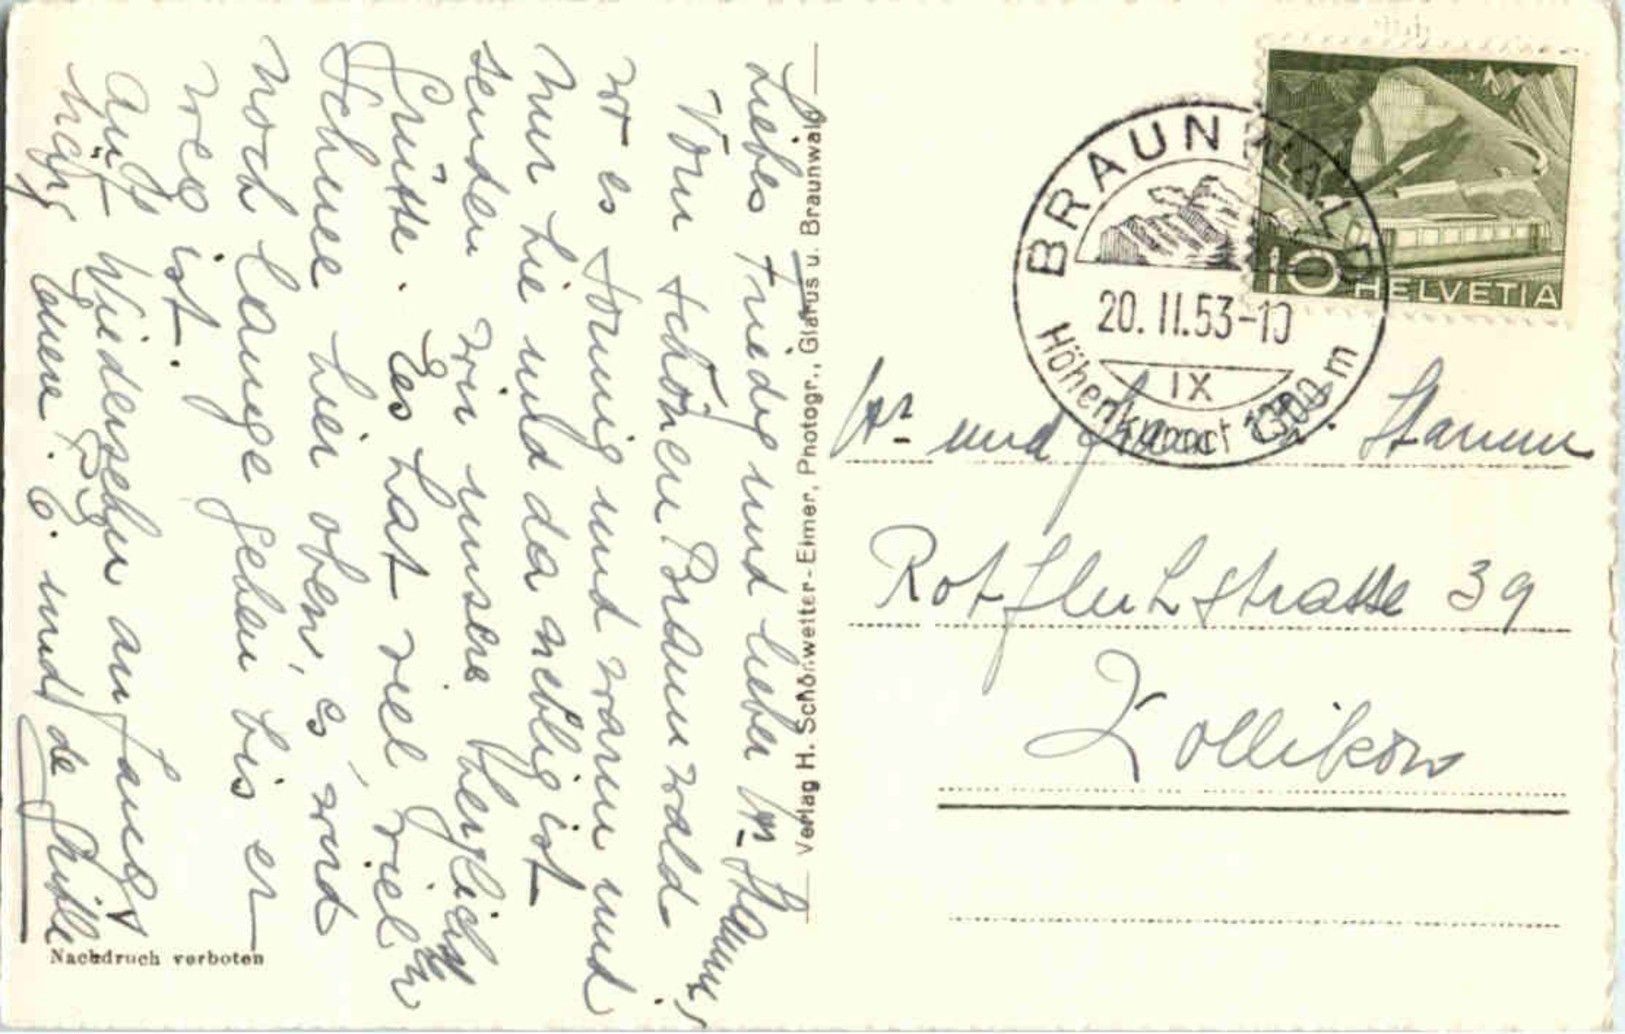 Liebes Friedy und lieber Hr. Stamm,
Vom schönen Braunwald
wo es sonnig und warm und
nur hie und da neblig ist
senden wir unsere herzlichsten
Grüsse. Es hat viel, viel
Schnee hier oben, es wird
noch lange gehen bis er
weg ist.
Auf Wiedersehen anfangs
März euere E. und de
Nachdruck verboten
Verlag H. Schönwetter-Elmer, Photogr., Glarus u. Braunwald
BRAUNWALD
20.II.53-10
IX
Höhenkurort 1300 m
10 HELVETIA
Hr. und Frau Stamm
Rotfluhstrasse 39
Zollikon